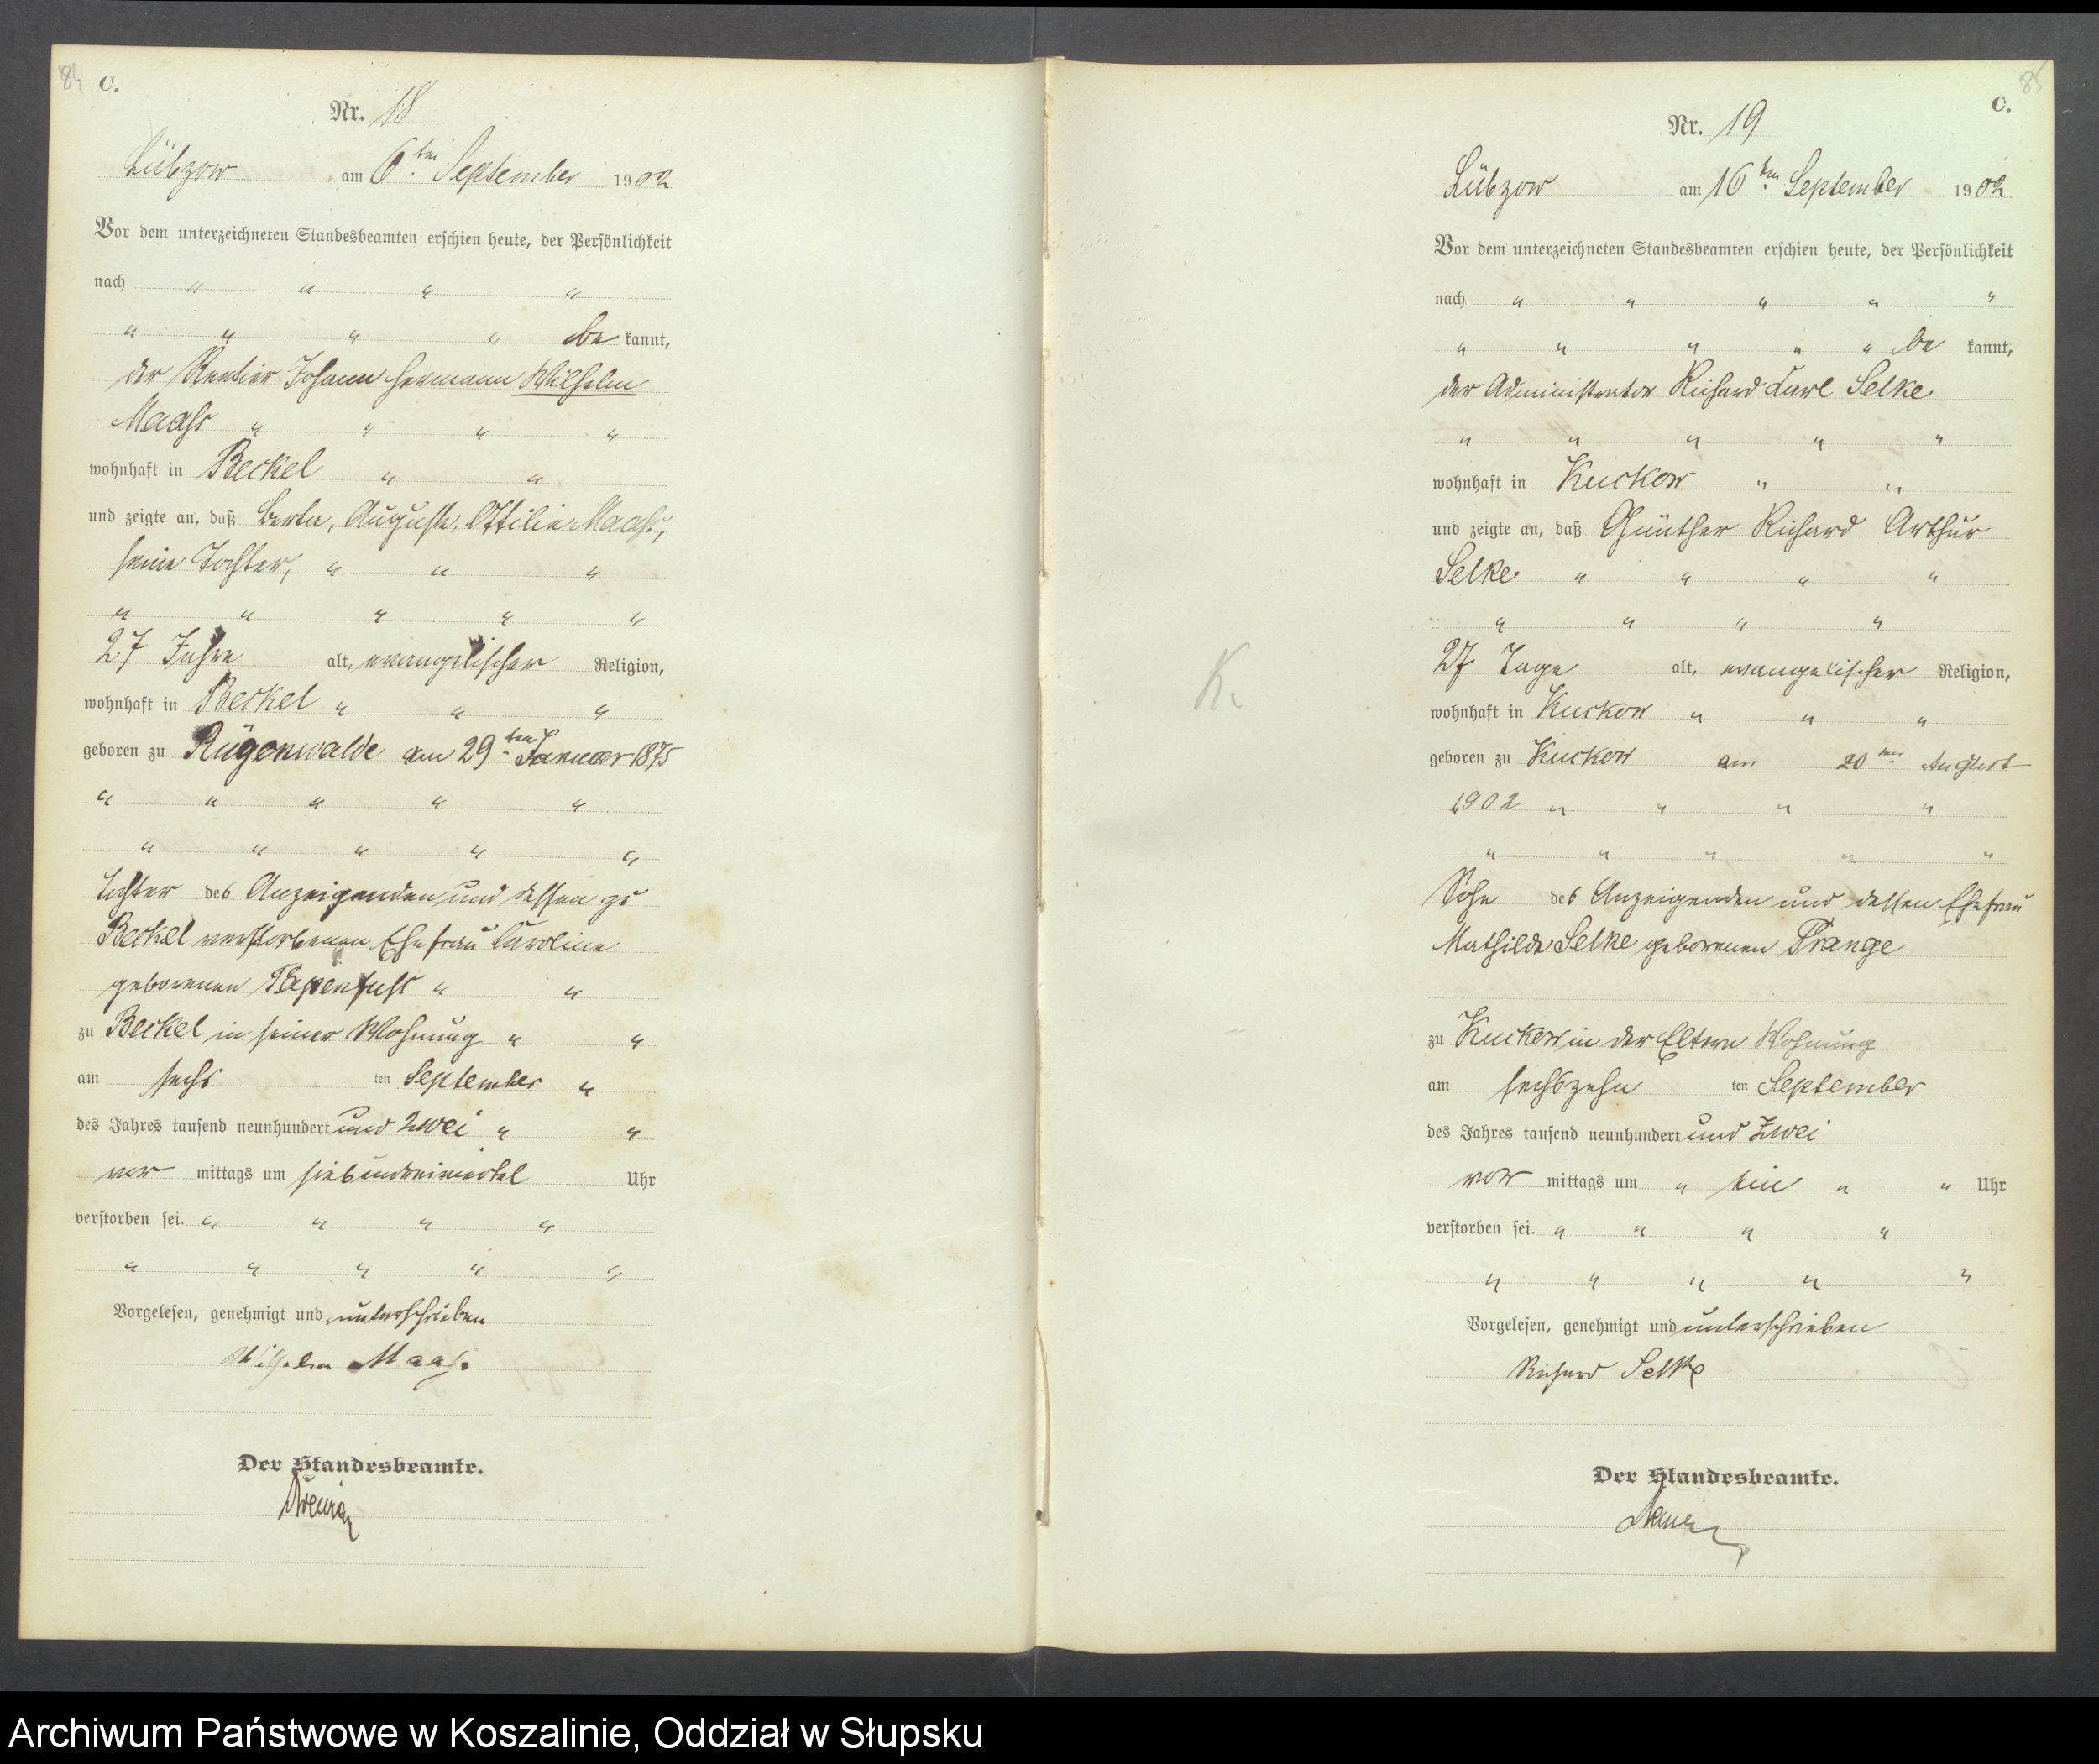 84 C.
Nr. 18
Lübzow am 6ten September 1902
Vor dem unterzeichneten Standesbeamten erschien heute, der Persönlichkeit
nach " " " "
" " " " be kannt,
der Rentier Johann Hermann Wilhelm
Maass " " " "
wohnhaft in Beckel " "
und zeigte an, daß Berta, Auguste, Ottilie Maass,
seine Tochter, " " "
" " " " "
27 Jahre alt, evangelischer Religion,
wohnhaft in Beckel " " "
geboren zu Rügenwalde am 29ten Januar 1875
" " " " "
" " " " "
Tochter des Anzeigenden und dessen zu
Beckel verstorbenen Ehefrau Caroline
geborenen Papenfuss " "
zu Beckel in seiner Wohnung " "
am sechs ten September "
des Jahres tausend neunhundert und zwei " "
vor mittags um sieben Uhr
verstorben sei. " " " "
" " " " "
Vorgelesen, genehmigt und unterschrieben
Wilhelm Maass
Der Standesbeamte.
85
C.
Nr. 19
Lübzow am 16ten September 1902
Vor dem unterzeichneten Standesbeamten erschien heute, der Persönlichkeit
nach " " " " "
" " " " " be kannt,
der Administrator Richard Karl Selke
" " " " "
wohnhaft in Kuckow " "
und zeigte an, daß Günther Richard Arthur
Selke " " " "
" " " "
27 Tage alt, evangelischer Religion,
wohnhaft in Kuckow " " "
geboren zu Kuckow am 20ten August
1902 " " " "
" " " " "
Sohn des Anzeigenden und dessen Ehefrau
Mathilde Selke geborenen Prange
K.
zu Kuckow in der Eltern Wohnung
am sechszehn ten September
des Jahres tausend neunhundert und zwei
vor mittags um " ein " " Uhr
verstorben sei. " " " "
" " " " "
Vorgelesen, genehmigt und unterschrieben
Richard Selke
Der Standesbeamte.
Archiwum Państwowe w Koszalinie, Oddział w Słupsku